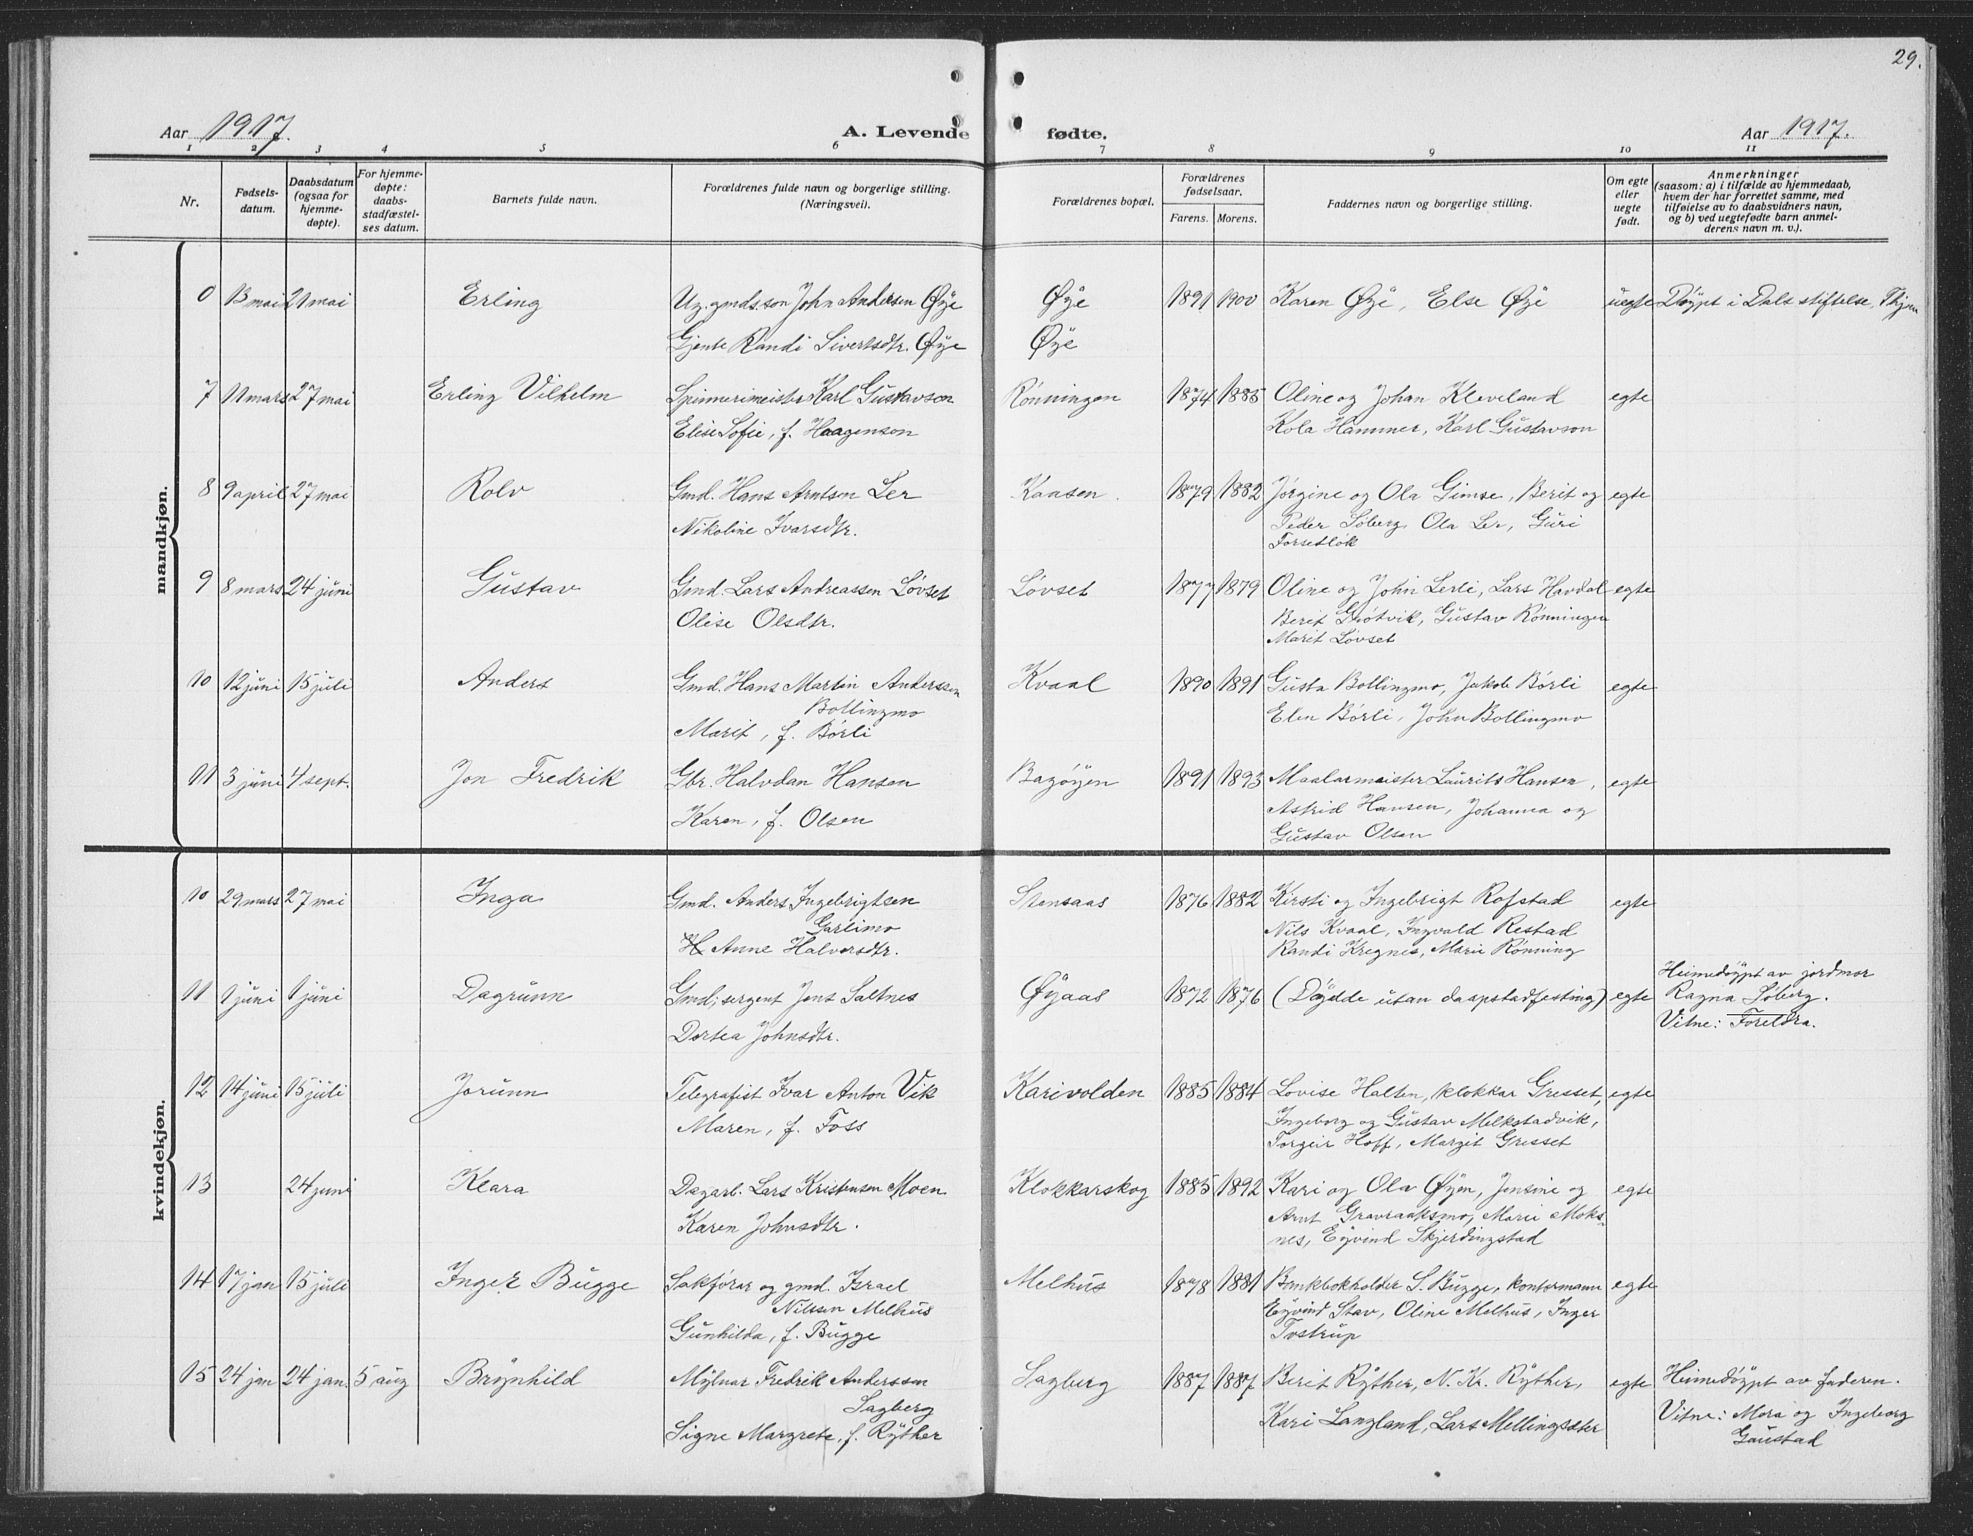 29.
Aar 1917. A. Levende fødte. Aar 1917.
1 2 3 4 5 6 7 8 9 10 11
Nr.
Fødsels-
datum.
Daabsdatum
(ogsaa for
hjemme-
døpte).
For hjemme-
døpte:
daabs-
stadfæstel-
ses datum.
Barnets fulde navn.
Forældrenes fulde navn og borgerlige stilling.
(Næringsvei).
Forældrenes bopæl.
Forældrenes
fødselsaar.
Farens. Morens.
Faddernes navn og borgerlige stilling.
Om egte
eller
uegte
født.
Anmerkninger
(saasom: a) i tilfælde av hjemmedaab,
hvem der har forrettet samme, med
tilføielse av to daabsvidners navn,
og b) ved uegtefødte barn anmel-
derens navn m. v.).
mandkjøn.
0 13 mai 21 mai Erling Ug. gmds.son John Andersen Øye Øye 1891 1900 Karen Øye, Else Øye uegte Døypt i Dals stiftelse, Thjem
Gjente Randi Sivertsdtr. Øye Øye
7 11 mars 27 mai Erling Vilhelm Spinnerimeister Karl Gustavson Rønningen 1874 1885 Oline og Johan Kleveland egte
Elise Sofie, f. Haagenson Kola Hammer, Karl Gustavson
8 9 april 27 mai Rolv Gmd. Hans Arntsen Ler Kaasen 1879 1882 Jørgine og Ola Gimse, Berit og egte
Nikoline Ivarsdtr. Peder Søberg, Ola Ler, Guri
Forsetløk
9 8 mars 24 juni Gustav Gmd. Lars Andreassen Løvset Løvset 1877 1879 Oline og John Lerli, Lars Havdal egte
Olise Olsdtr. Berit Grøtvik, Gustav Rønningen
Marit Løvset
10 12 juni 15 juli Anders Gmd. Hans Martin Anderssen Kvaal 1890 1891 Gusta Bollingmo, Jakob Børli egte
Bollingmo
Marit, f. Børli Elen Børli, John Bollingmo
11 3 juni 4 sept. Jon Fredrik Gbr. Halvdan Hansen Bagøyen 1891 1893 Maalarmeister Laurits Hansen, egte
Karen, f. Olsen Astrid Hansen, Johanna og
Gustav Olsen
kvindekjøn.
10 29 mars 27 mai Inga Gmd. Anders Ingebrigtsen Stensaas 1876 1882 Kirsti og Ingebrigt Rofstad egte
Garlimo Nils Kvaal, Ingvald Restad
Anne Halvorsdtr. Randi Kregnes, Marie Rønning
11 1 juni 1 juni Dagrunn Gmd; sergent Jens Saltnes Øyaas 1872 1876 (Døydde utan daapstadfesting) egte Heimedøypt av jordmor
Ragna Søberg.
Dortea Johnsdtr. Vitne: Foreldra.
12 14 juni 15 juli Jorunn Telegrafist Ivar Anton Vik Karivolden 1885 1884 Lovise Halten, klokkar Gresset, egte
Maren, f. Foss Ingeborg og Gustav Melkstadvik,
Torgeir Hoff, Margit Gresset
13 24 juni Klara Dagarb. Lars Kristensen Moen Klokkarskog 1885 1892 Kari og Ola Øyen, Jensine og egte
Karen Johnsdtr. Arnt Gravraaksmo, Marie Moks-
nes, Eyvind Skjerdingstad
14 17 jan 15 juli Inger Bugge Sakførar og gmd. Israel Melhus 1878 1881 Bankbokholder S. Bugge, kontormann egte
Nilssen Melhus Eyvind Stav, Oline Melhus, Inger
Gunhilda, f. Bugge Tostrup
15 24 jan 24 jan. 5 aug Brynhild Mylnar Fredrik Anderssen Sagberg 1887 1887 Berit Ryther, N. Kr. Ryther, egte Heimedøypt av faderen.
Sagberg
Signe Margrete, f. Ryther Kari Langland, Lars Mellingsæter Vitne: Mora og Ingeborg
Gaustad